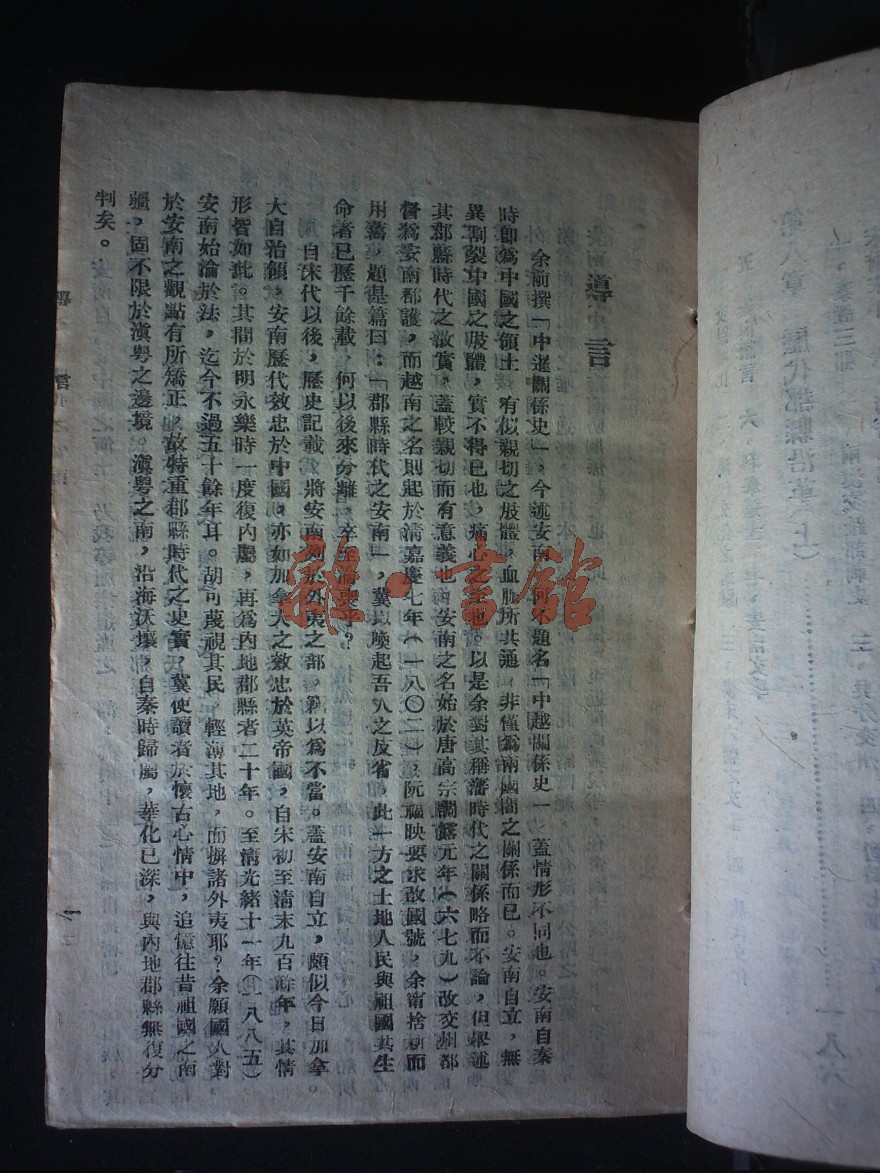 導言
余前撰「中暹關係史」，今述安南，何不題名「中越關係史」蓋情形不同也。安南自秦
時卽爲中國之領土，有似親切之肢體，血脈所共通，非僅爲兩國間之關係而已。安南自立，無
異割裂中國之肢體，實不得已也，痛心之至也。以是余對其稱藩時代之關係略而不論，但舉述
其郡縣時代之故實，蓋較親切而有意義也。安南之名始於唐高宗調露元年（六七九）改交州都
督爲安南都護，而越南之名則起於清嘉慶七年（一八〇二），阮福映要求改國號，余甯捨新而
用舊，題是篇曰：「郡縣時代之安南」，冀以喚起吾人之反省，此一方之土地人民與祖國共生
命者已歷千餘載，何以後來分離，卒至淪喪乎？
自宋代以後，歷史記載，將安南列於外夷之部，竊以爲不當。蓋安南自立，頗似今日加拿
大自治領，安南歷代效忠於中國，亦如加拿大之效忠於英帝國，自宋初至清末九百餘年，其情
形皆如此。其間於明永樂時一度復內屬，再爲內地郡縣者二十年。至清光緒十一年（一八八五）
安南始淪於法，迄今不過五十餘年耳。胡可蔑視其民，輕薄其地，而摒諸外夷耶？余願國人對
於安南之觀點有所矯正，故特重郡縣時代之史實，冀使讀者於懷古心情中，追憶往昔祖國之南
疆，固不限於滇粵之邊境。滇粵之南，沿海沃壤，自秦時歸屬，華化已深，與內地郡縣無復分
判矣。
導言
一
雜·書館